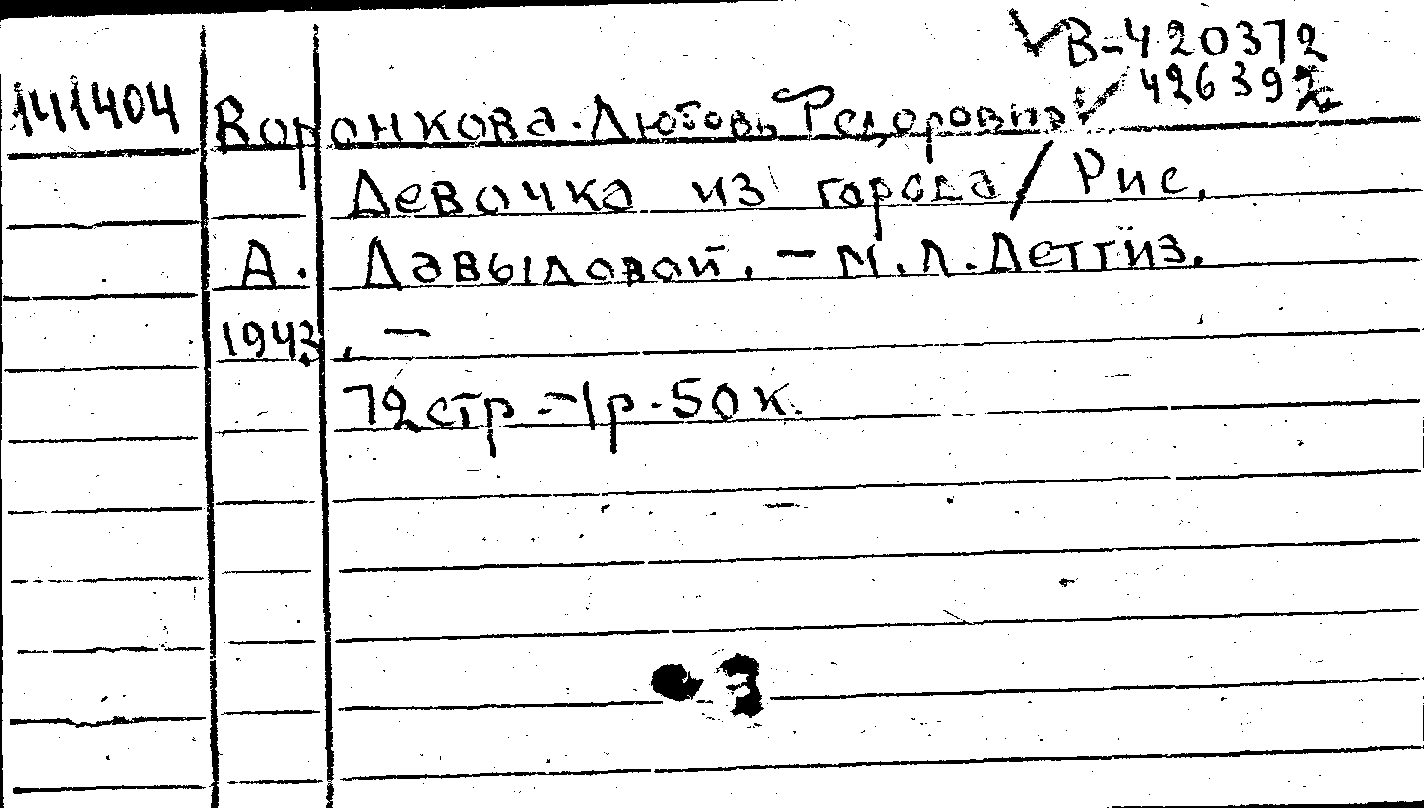 В-420372
426392
141404 Воронкова Любовь Федоровна
Девочка из города / Рис.
А. Давыдовой. – М. Л. Детгиз.
1943. –
72 стр. – 1 р. 50 к.